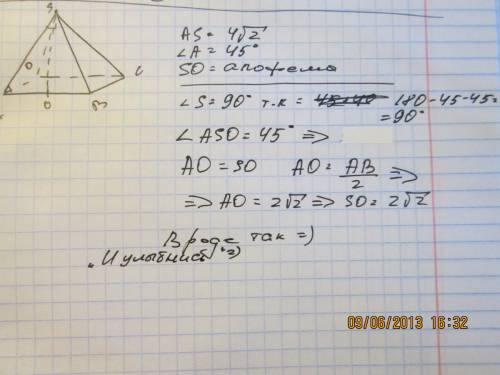 S
AS = 4√2
∠A = 45°
SO = апофема
O
C
O
B
∠S = 90° т.к = 180-45-45=
= 90°
∠ASO = 45° =>
AO = SO AO = AB/2 =>
=> AO = 2√2 => SO = 2√2
Вроде так =)
"И улыбнись" =)
09/06/2013 16:32